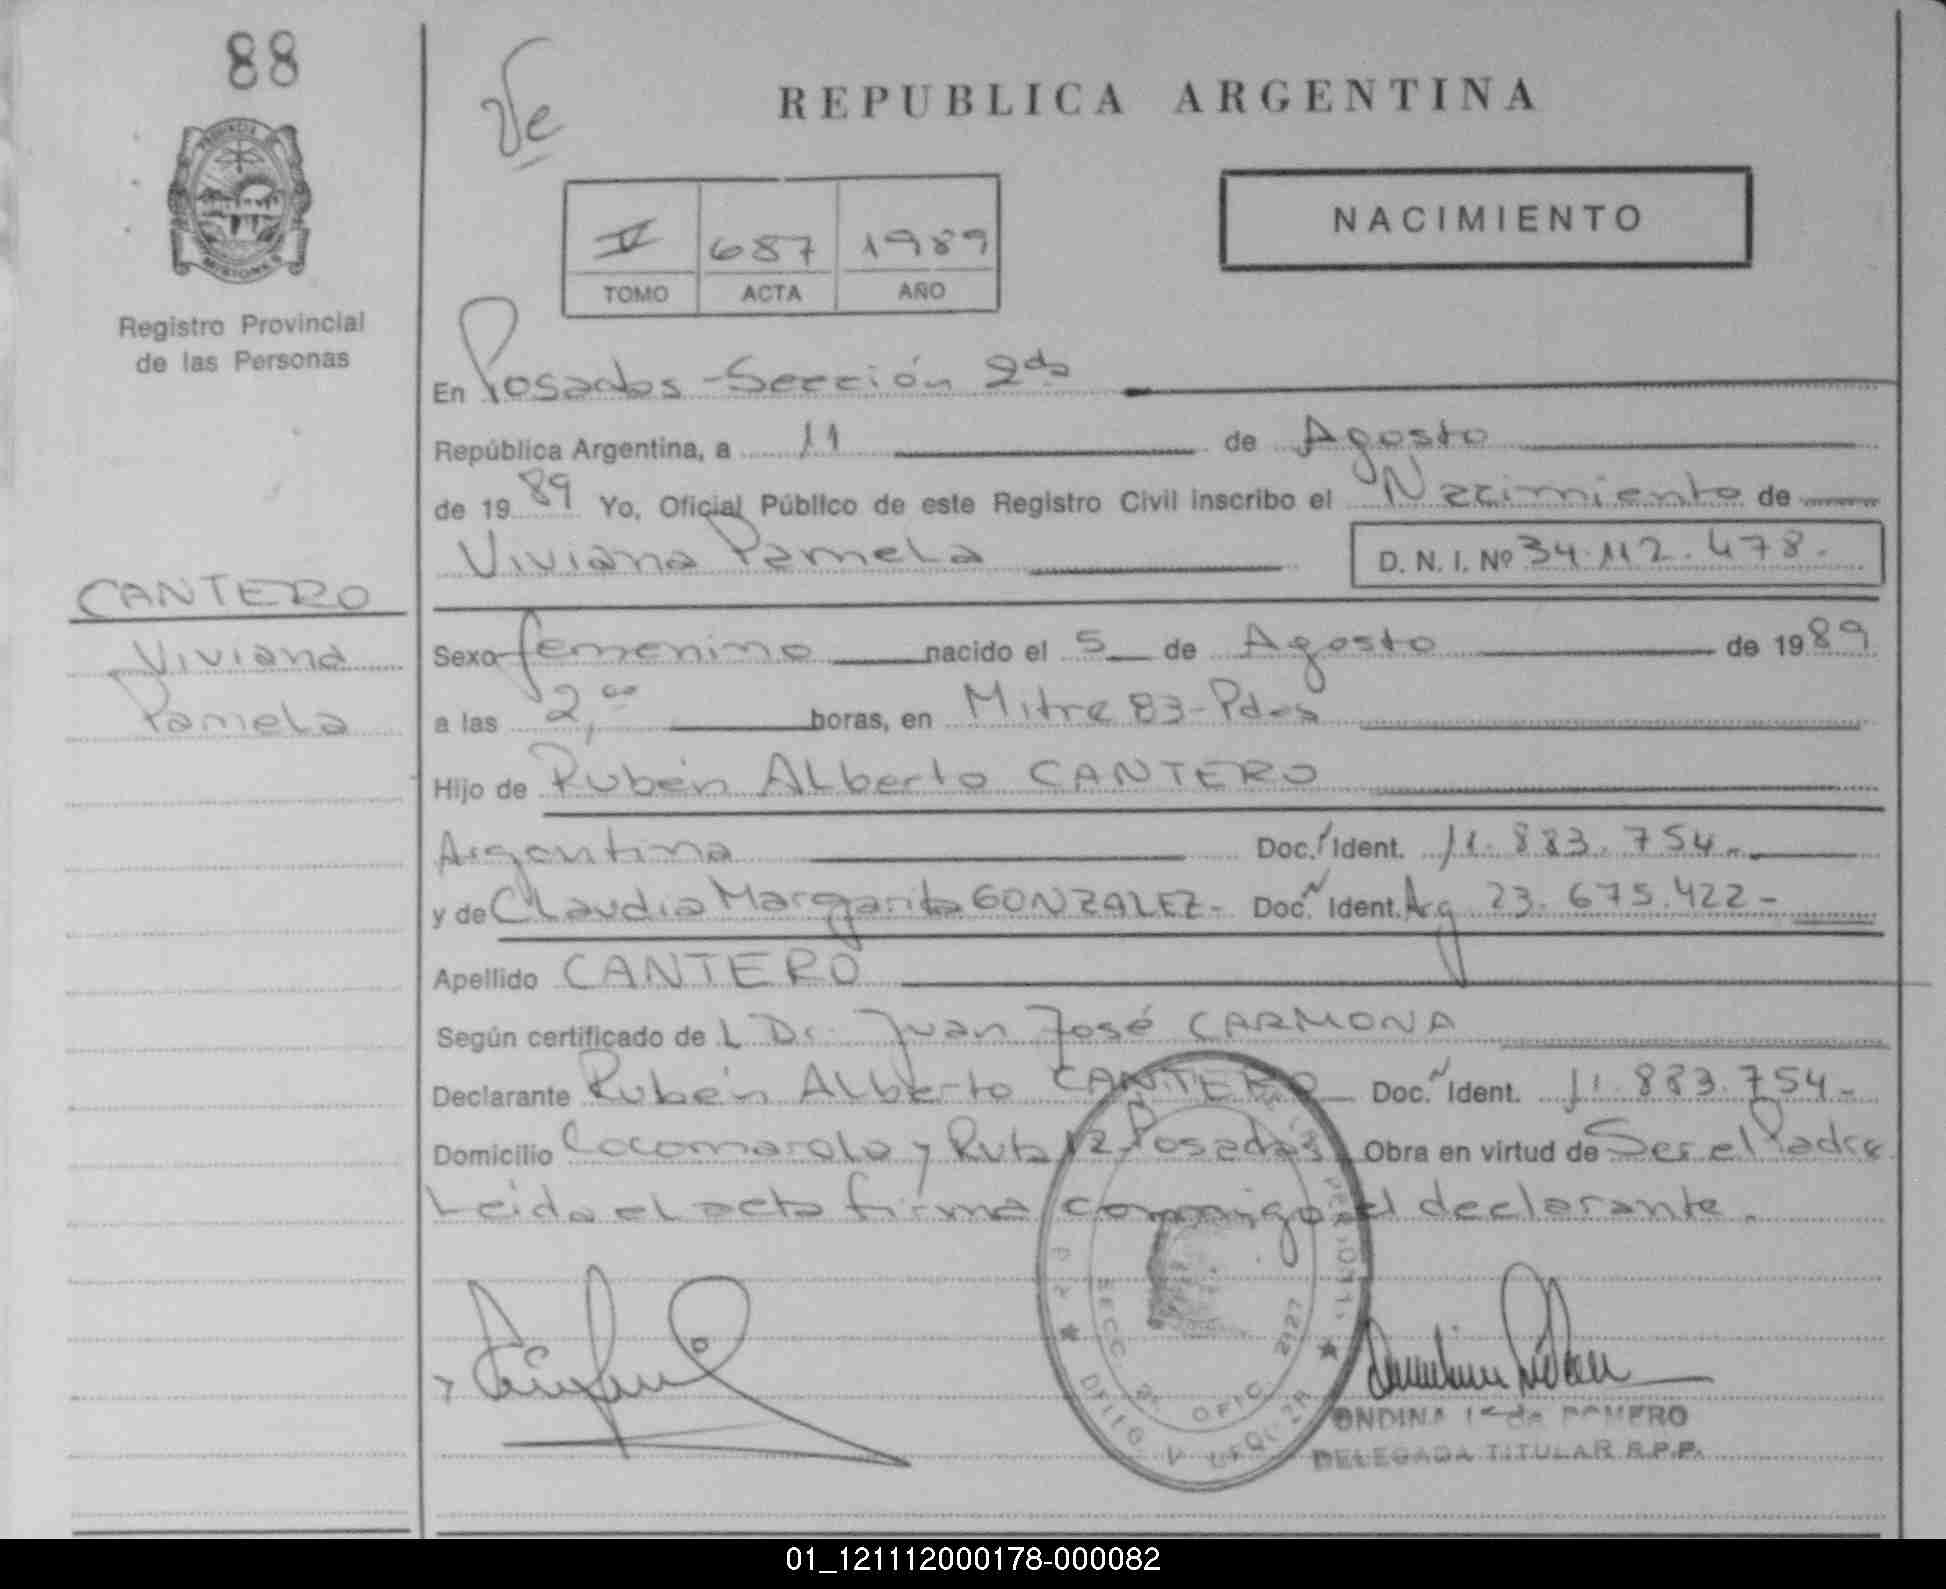 88
Ve
REPUBLICA ARGENTINA
NACIMIENTO
687 1989
TOMO ACTA AÑO
PROVINCIA
MISIONES
Registro Provincial
de las Personas
En Posadas - Sección 2da
República Argentina, a 11 de Agosto
de 1989 Yo, Oficial Público de este Registro Civil inscribo el Nacimiento de
Viviana Pamela D. N. I. Nº 34.112.478.-
CANTERO
Viviana
Pamela
Sexo femenino nacido el 5 de Agosto de 1989
a las 2,00 horas, en Mitre 83 - Pdas
Hijo de Rubén Alberto CANTERO
Argentina Doc. Ident. 11.883.754.-
y de Claudia Margarita GONZALEZ - Doc. Ident. Arg 23.675.422 -
Apellido CANTERO
Según certificado de L Dr. Juan José CARMONA
Declarante Rubén Alberto CANTERO Doc. Ident. 11.883.754-
Domicilio Cocomarola y Ruta 12 - Posadas Obra en virtud de Ser el Padre
Leida el acta firma conmigo el declarante.
SECC. 2 OFIC. 2127
ONDINA de ROMERO
DELEGADA TITULAR R.P.P.
01_121112000178-000082